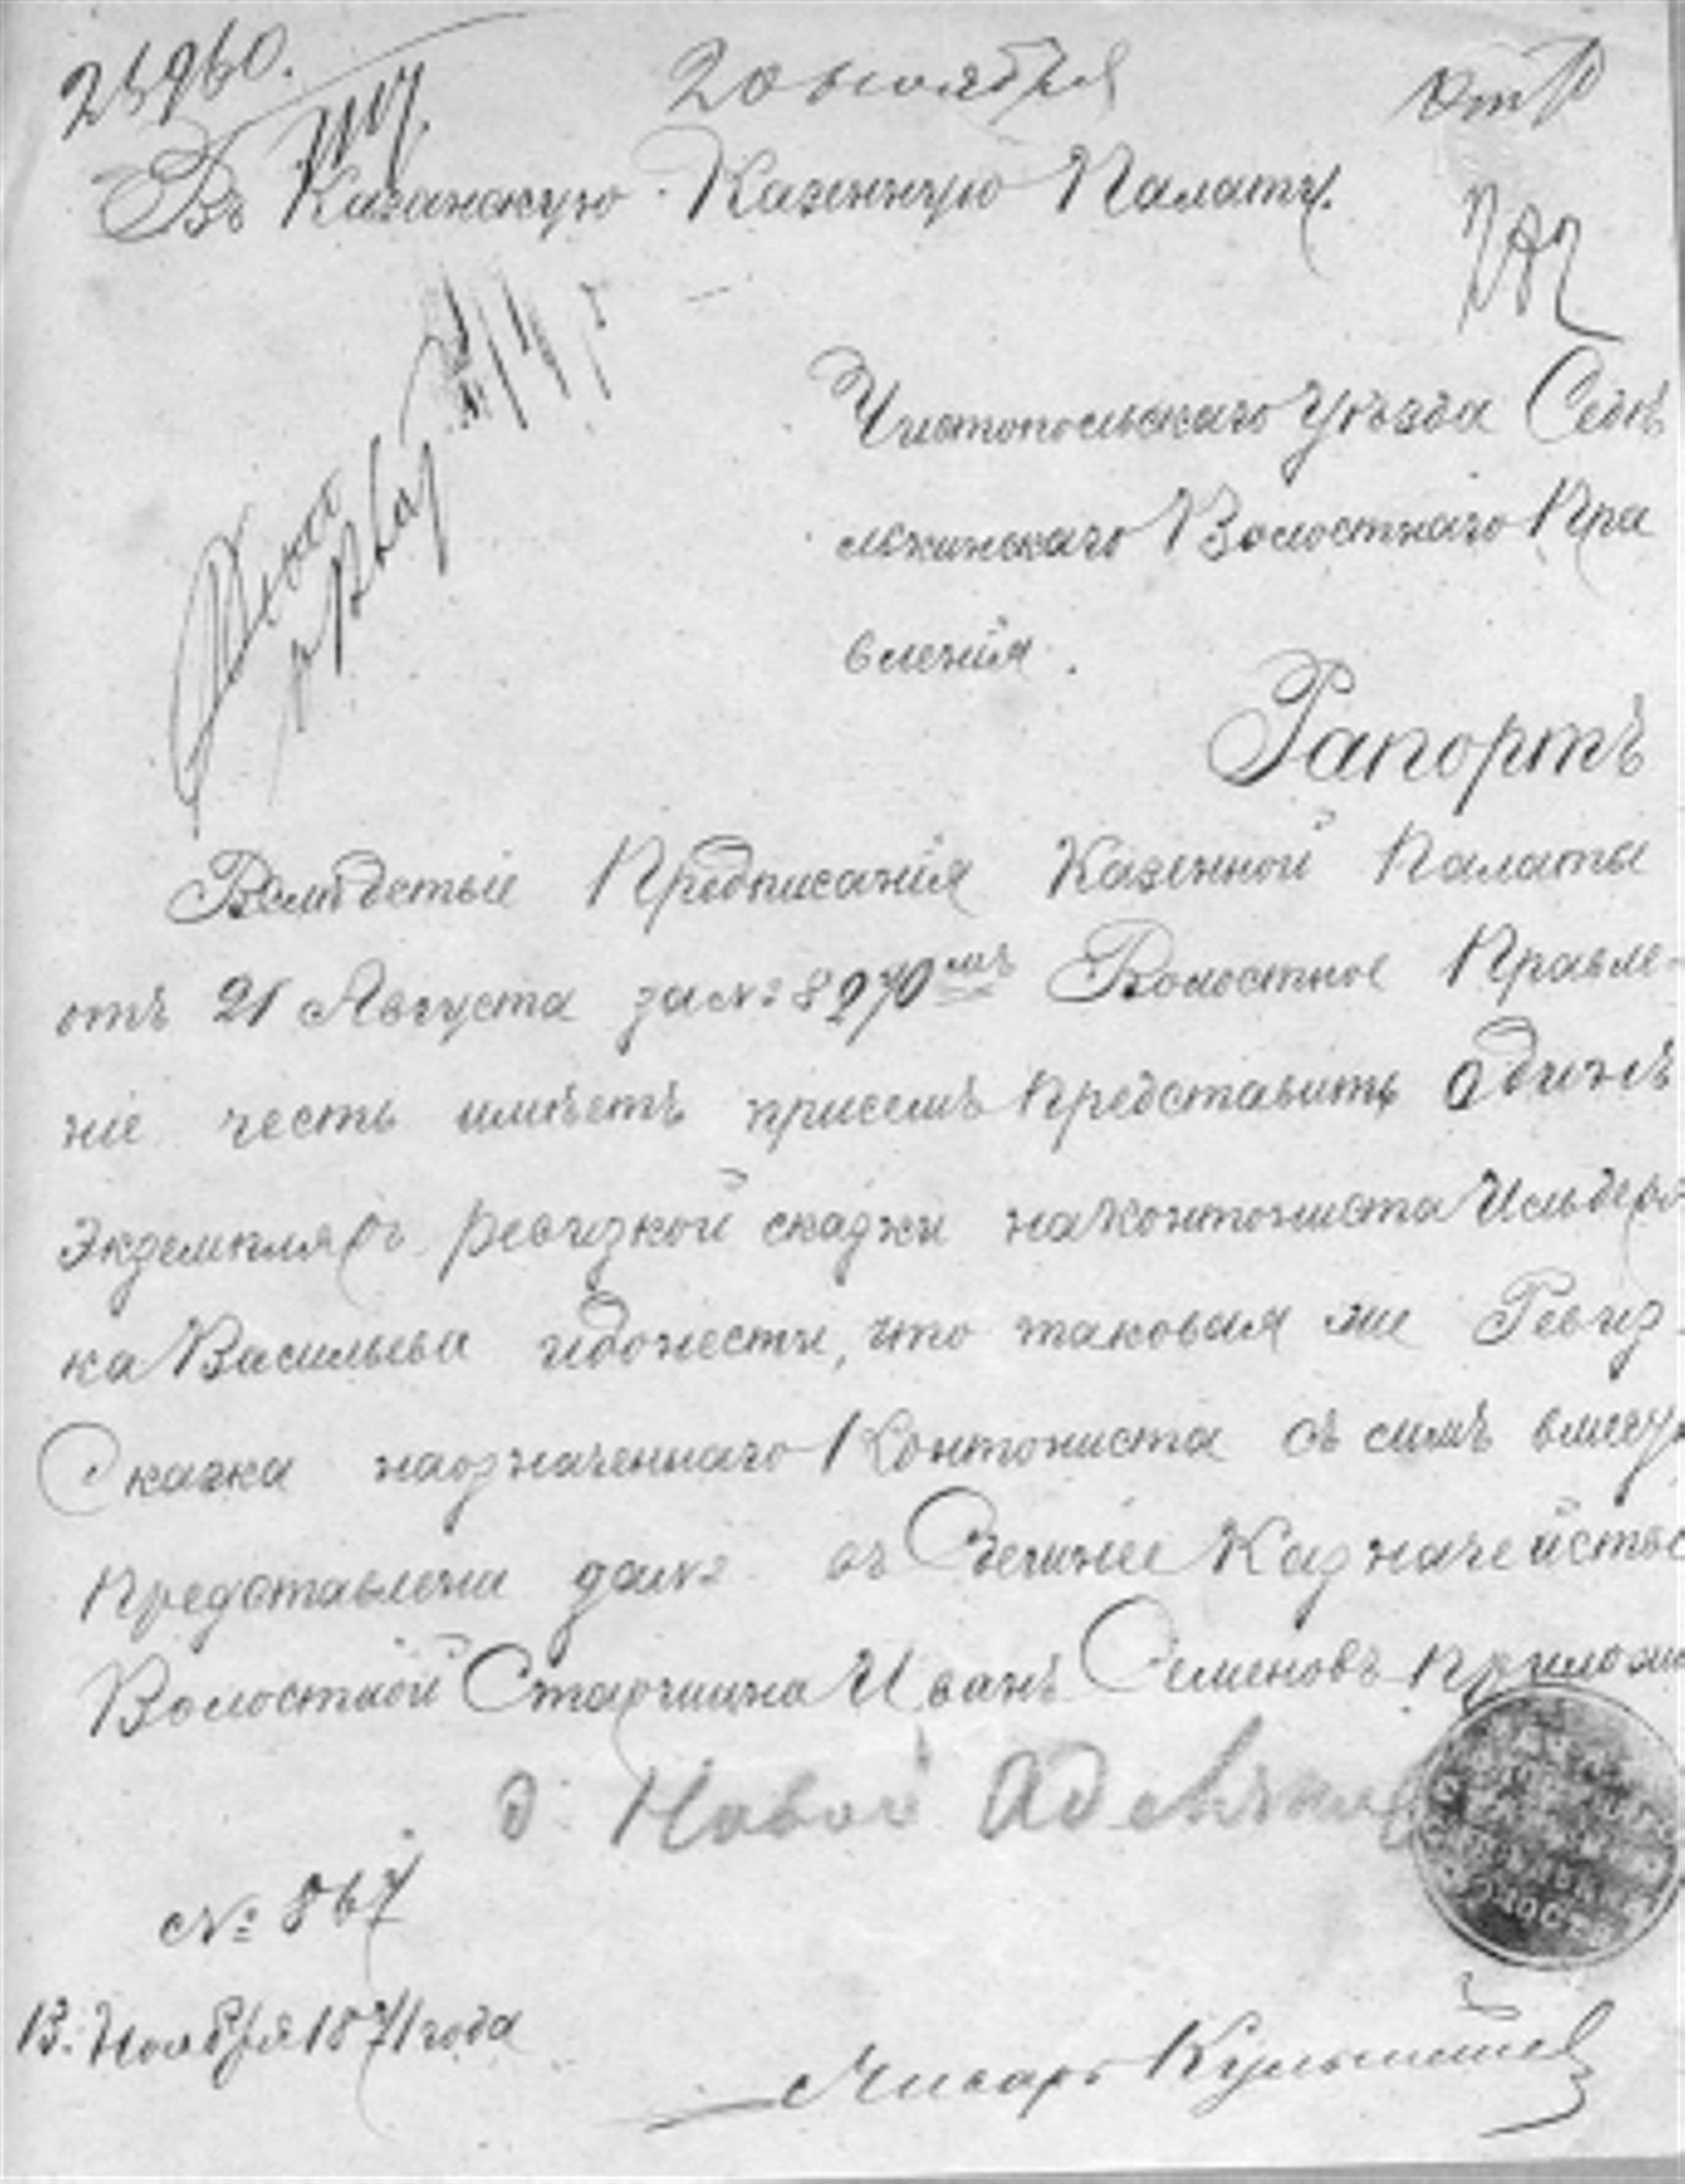 20 ноября
Въ Казанскую Казенную Палату.
Чистопольскаго Уѣзда Седѣ
лькинскаго Волостнаго Пра
вленія.
Рапортъ
Вслѣдствіе Предписанія Казенной Палаты
отъ 21 Августа за № 8270 мъ Волостное Правле-
ніе честь имѣетъ присемъ Представить Одинъ
Экземпляръ ревизкой сказки наконтониста Ильдеря
ка Васильева идонести, что таковая же Ревиз
Скаска наозначеннаго Контониста съ симъ вмес
Представлена за № въ Казначейство
Волостной Старшина Иванъ Семеновъ Приложи
д. Новой Аделькин
№ 867
13. Ноября 1871 года
Писарь